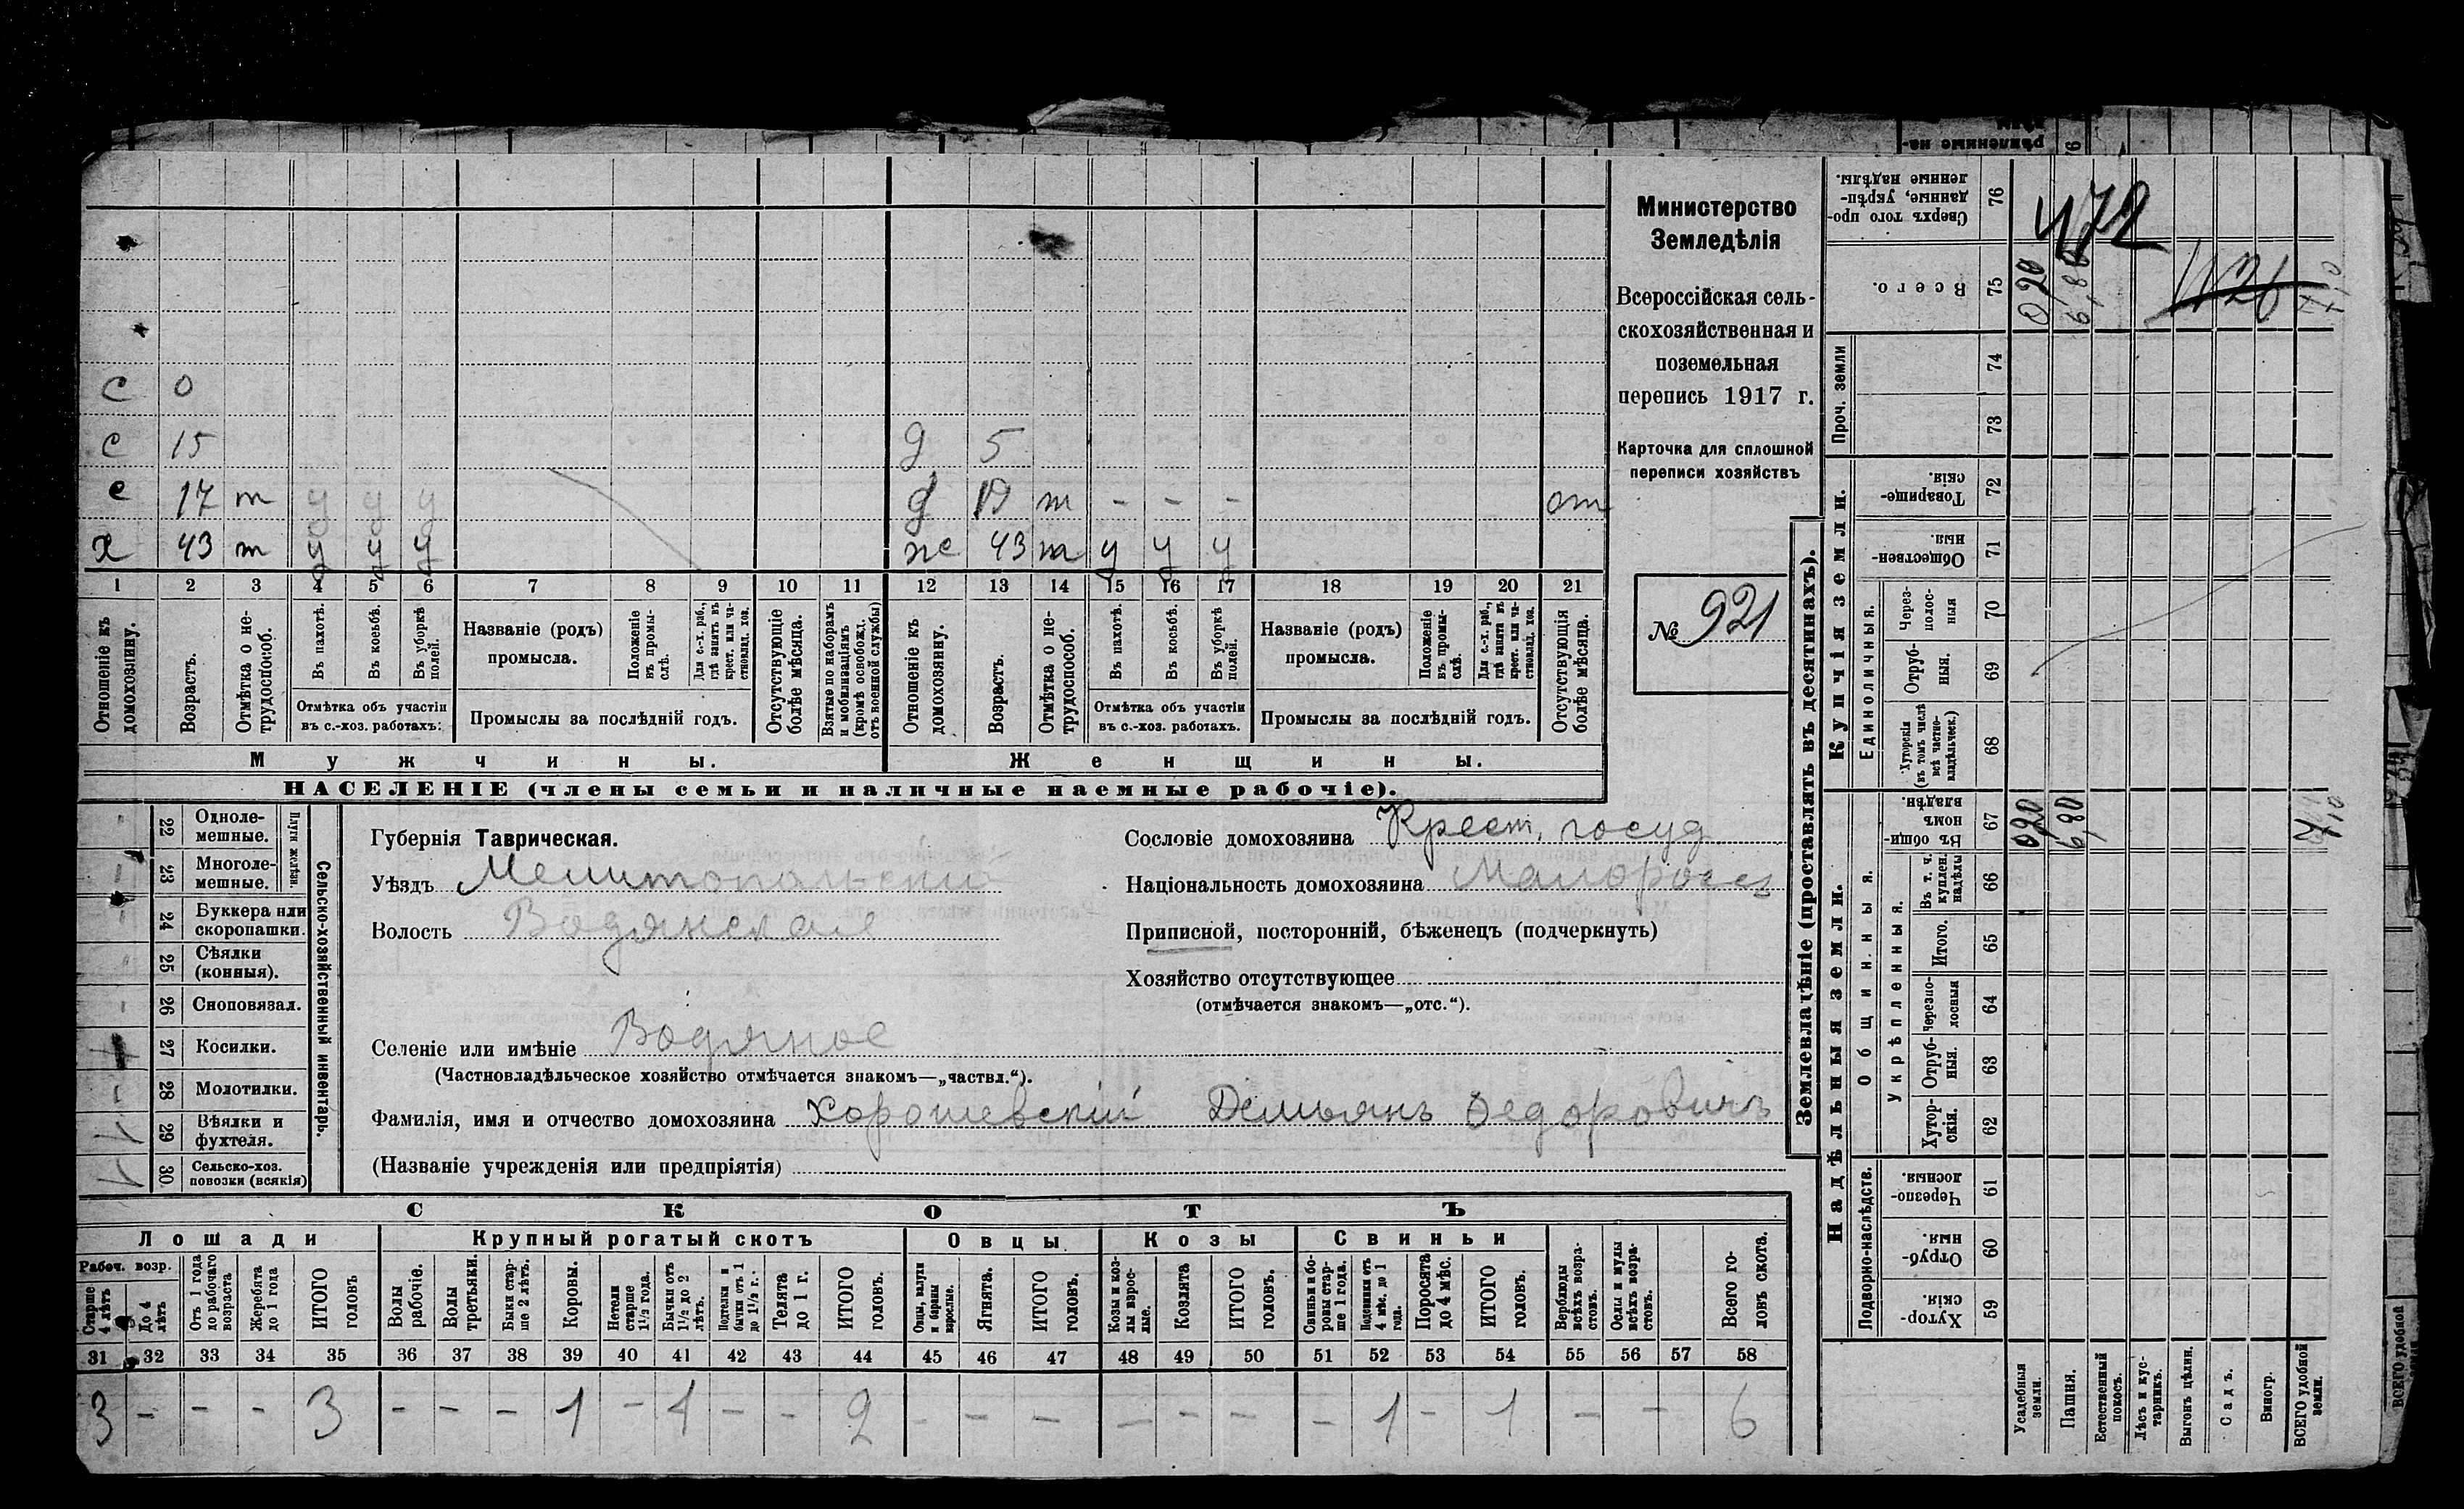 рѣпленные на-
76
Министерство
Земледѣлія
Всероссійская сель-
скохозяйственная и
поземельная
перепись 1917 г.
Карточка для сплошной
переписи хозяйствъ
№ 921
с 0
с 15 д 5
с 17 т у у у д 19 т - - - от
х 43 т у у у ж 43 т у у у
1 2 3 4 5 6 7 8 9 10 11 12 13 14 15 16 17 18 19 20 21
Отношеніе къ домохозяину.
Возрастъ.
Отмѣтка о не-трудоспособ.
Въ пахотѣ.
Въ косьбѣ.
Въ уборкѣ полей.
Отмѣтка объ участіи
въ с.-хоз. работахъ:
Названіе (родъ)
промысла.
Положеніе въ промы-слѣ.
Для с.-х. раб., гдѣ занятъ въ крест. или ча-стновлад. хоз.
Промыслы за послѣдній годъ.
Отсутствующіе болѣе мѣсяца.
Взятые по наборамъ и мобилизаціямъ (кромѣ освобожд. отъ военной службы)
Отношеніе къ домохозяину.
Возрастъ.
Отмѣтка о не-трудоспособ.
Въ пахотѣ.
Въ косьбѣ.
Въ уборкѣ полей.
Отмѣтка объ участіи
въ с.-хоз. работахъ.
Названіе (родъ)
промысла.
Положеніе въ промы-слѣ.
Для с.-х. раб., гдѣ занята въ крест. или ча-стновлад. хоз.
Промыслы за послѣдній годъ.
Отсутствующія болѣе мѣсяца.
Мужчины. Женщины.
НАСЕЛЕНІЕ (члены семьи и наличные наемные рабочіе).
22 Одноле-мешные.
23 Многоле-мешные.
Плуги желѣзн.
24 Буккера или скоропашки.
25 Сѣялки (конныя).
26 Сноповязал.
27 Косилки.
28 Молотилки.
29 Вѣялки и фухтеля.
30 Сельско-хоз. повозки (всякія)
Сельско-хозяйственный инвентарь.
Губернія Таврическая.
Уѣздъ Мелитопольскій
Волость Водянская
Селеніе или имѣніе Водяное
(Частновладѣльческое хозяйство отмѣчается знакомъ—„частвл.“).
Фамилія, имя и отчество домохозяина Хорошевскій Демьянъ Федоровичъ
(Названіе учрежденія или предпріятія)
Сословіе домохозяина Крест. госуд
Національность домохозяина Малороссъ
Приписной, посторонній, бѣженецъ (подчеркнуть)
Хозяйство отсутствующее
(отмѣчается знакомъ—„отс.“).
СКОТЪ
Лошади Крупный рогатый скотъ Овцы Козы Свиньи
Рабоч. возр.
Старше 4 лѣтъ
До 4 лѣтъ
Отъ 1 года до рабочаго возраста
Жеребята до 1 года
ИТОГО головъ
Волы рабочіе.
Волы третьяки.
Быки стар-ше 2 лѣтъ.
Коровы.
Нетели старше 1½ года.
Бычки отъ 1½ до 2 лѣтъ.
Подтелки и бычки отъ 1 до 1½ г.
Телята до 1 г.
ИТОГО головъ.
Овцы, валухи и бараны взрослые.
Ягнята.
ИТОГО головъ.
Козы и коз-лы взрос-лые.
Козлята
ИТОГО головъ.
Свиньи и бо-ровы стар-ше 1 года.
Подсвинки отъ 4 мѣс. до 1 года.
Поросята до 4 мѣс.
ИТОГО головъ.
Верблюды всѣхъ возра-стовъ.
Ослы и мулы всѣхъ возра-стовъ.
Всего го-ловъ скота.
31 32 33 34 35 36 37 38 39 40 41 42 43 44 45 46 47 48 49 50 51 52 53 54 55 56 57 58
3 - - - 3 - - - 1 - 1 - - 2 - - - - - - - 1 - 1 - - 6
Землевладѣніе (проставлять въ десятинахъ).
Сверхъ того про-данные, укрѣп-ленные надѣлы. 76
472
Всего. 75 0,20 6,80 7,0
Проч. земли 74 73
Купчія земли.
Товарище-скія 72
Обществен-ныя 71
Единоличныя.
Через-полос-ныя 70
Отруб-ныя. 69
Хуторскія (въ томъ числѣ всѣ частно-владѣльческ.) 68
Надѣльныя земли.
Общинныя.
Въ общи-номъ владѣн. 67 0,20 6,80 7,0
Въ т. ч. куплен. надѣлы 66
Укрѣпленныя.
Итого. 65
Черезпо-лосныя 64
Отруб-ныя. 63
Хутор-скія. 62
Подворно-наслѣдств.
Черезпо-лосныя. 61
Отруб-ныя. 60
Хутор-скія 59
Усадебныя земли.
Пашня.
Естественный покосъ.
Лѣсъ и кус-тарникъ.
Выгонъ цѣлин.
Садъ.
Виногр.
ВСЕГО удобной земли.
ВСЕГО удобной